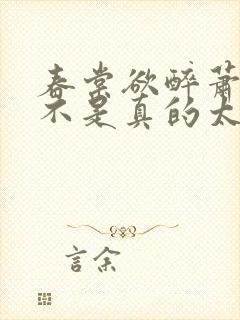 春棠欲醉萧
不是真的太
言余